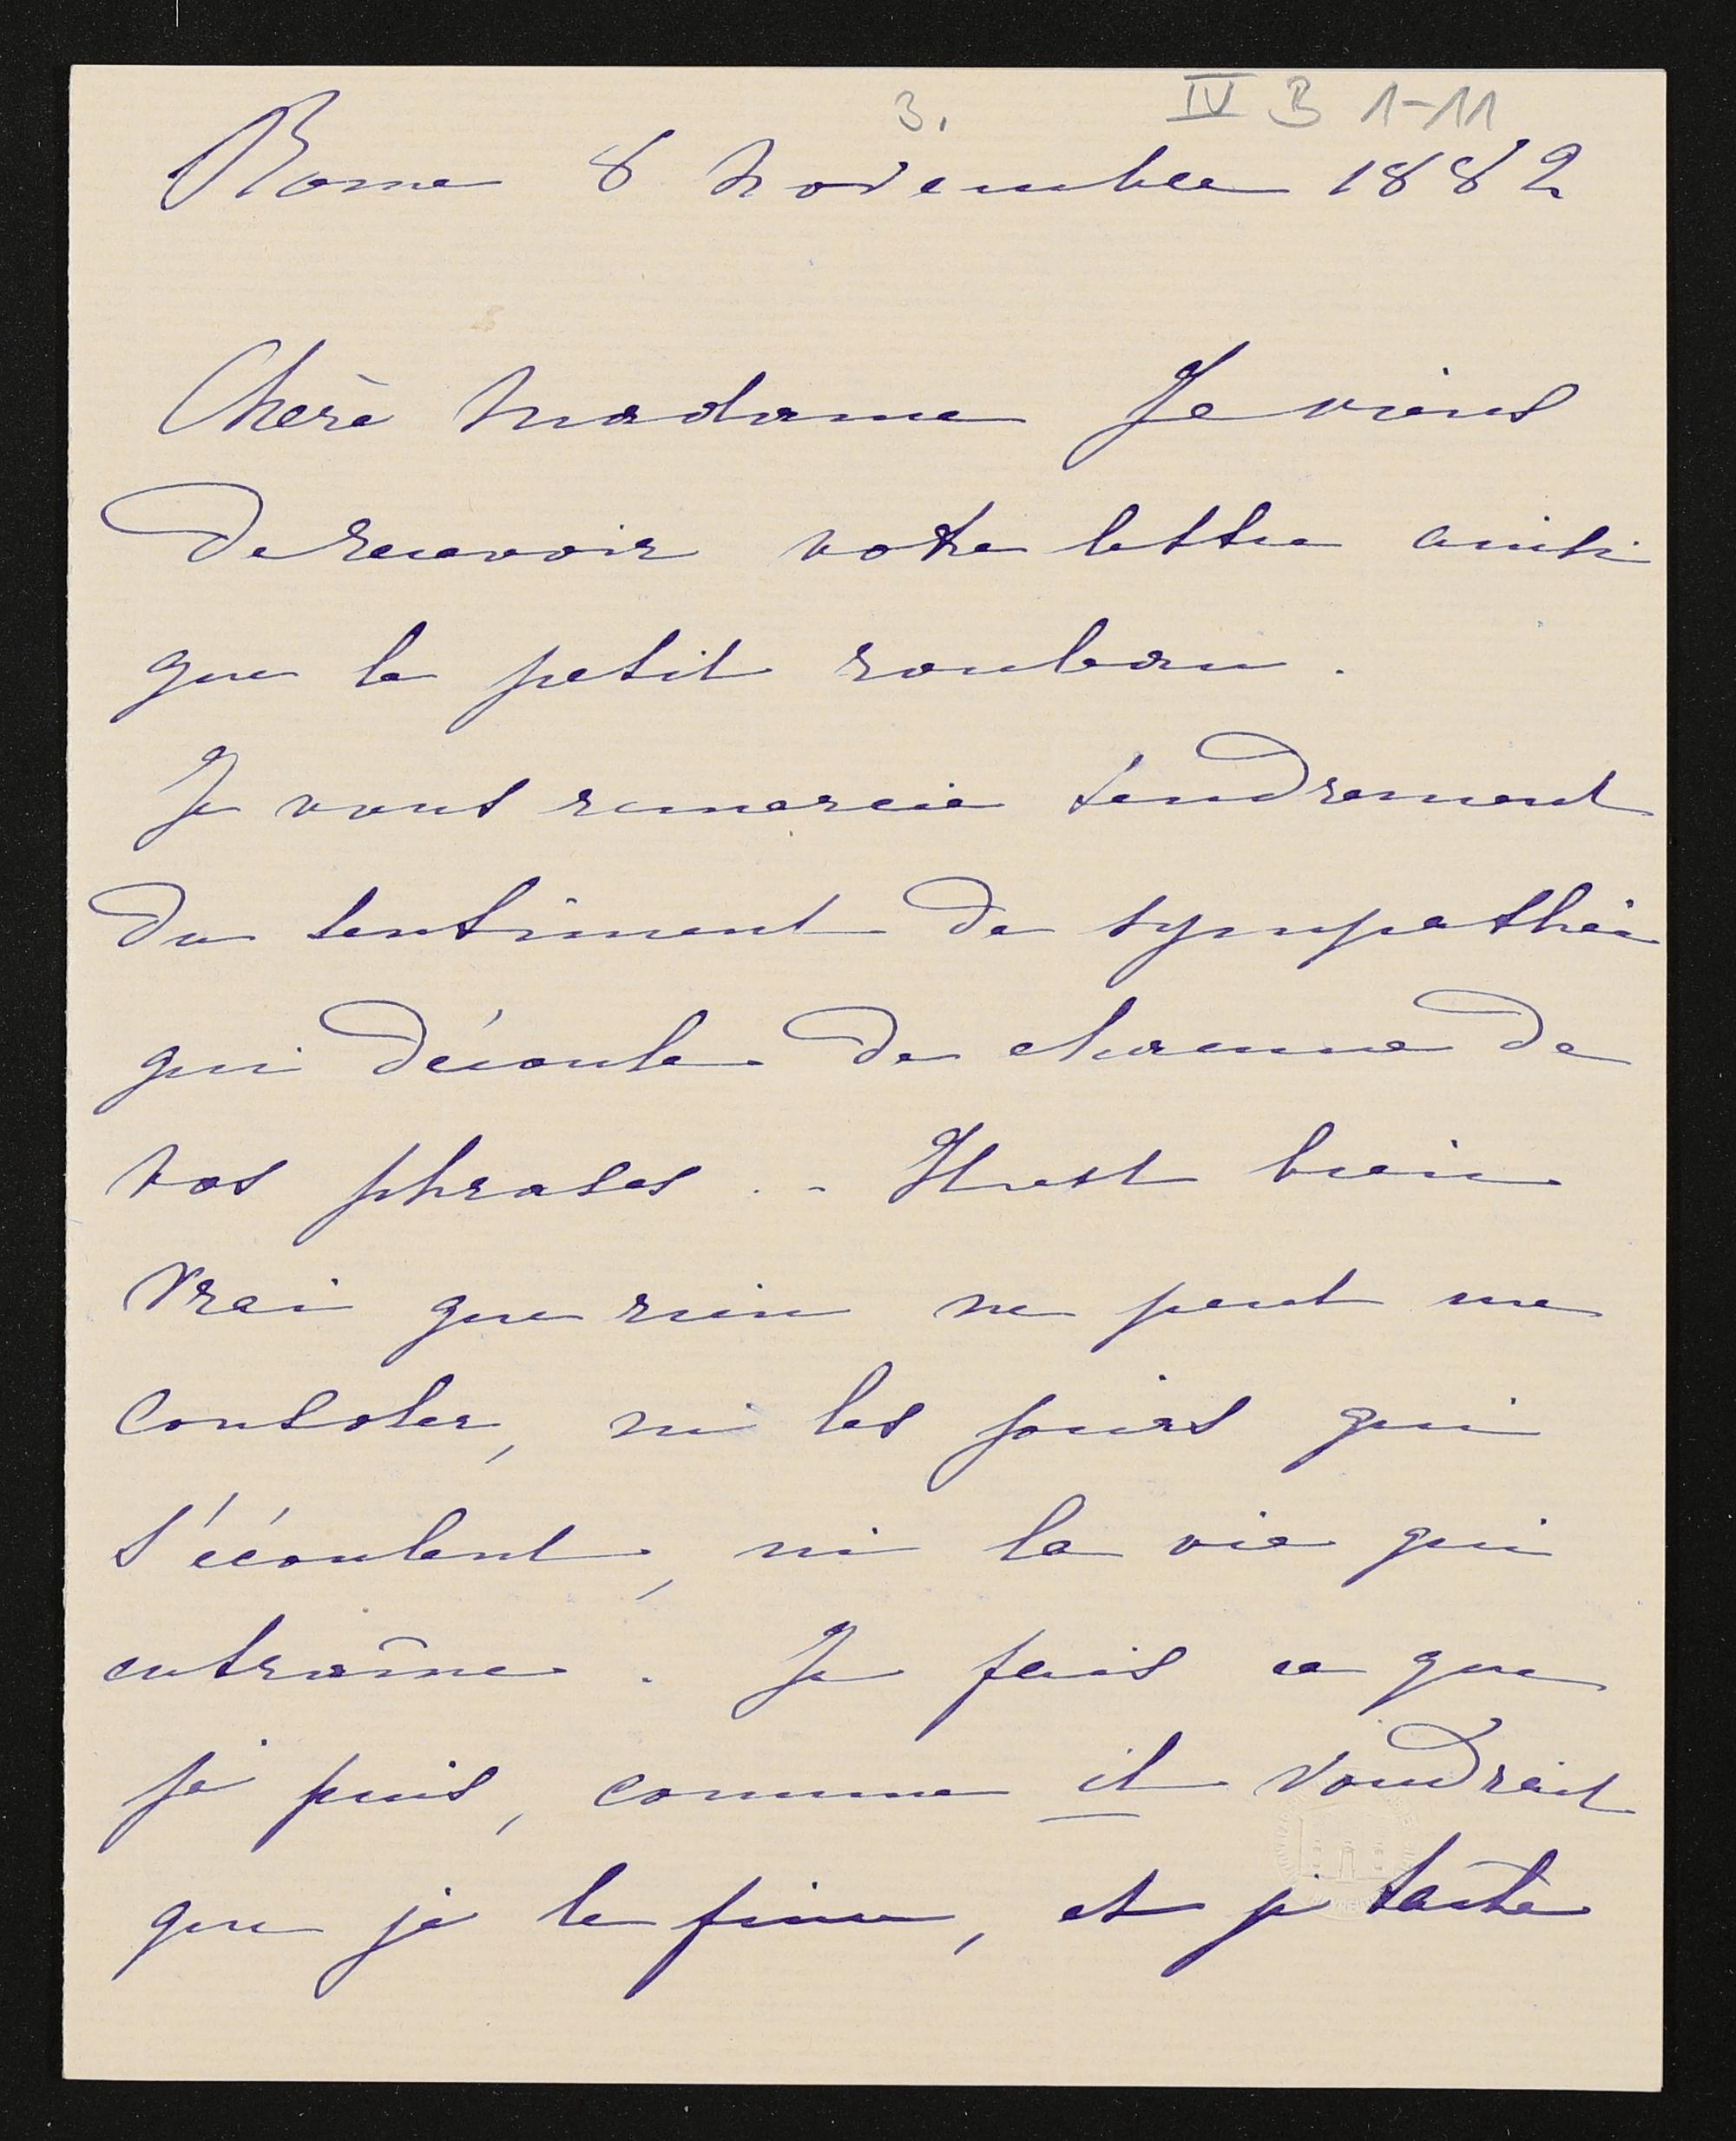 3. IV B 1-11
Rome 8 novembre 1882
Chère Madame Je viens
de recevoir votre lettre ainsi
que le petit rouleau.
Je vous remercie tendrement
du sentiment de sympathie
qui découle de chacune de
vos phrases .. Il est bien
vrai que rien ne peut me
consoler, ni les jours qui
s'écoulent, ni la vie qui
entraîne. Je fais ce que
je puis, comme il voudrait
que je le fisse, et je tâche